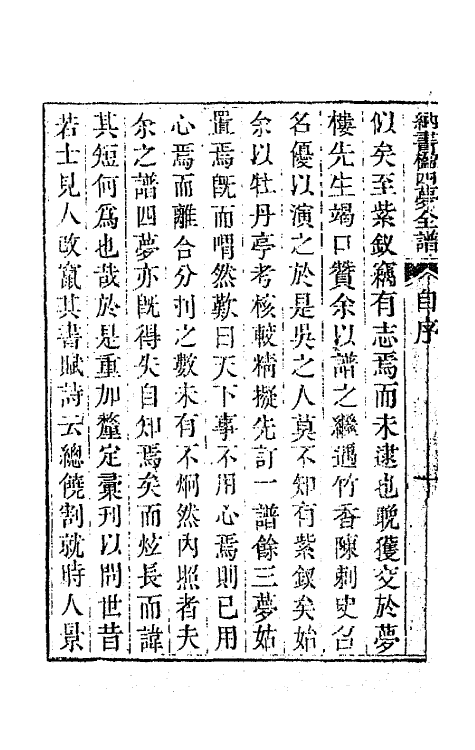 納書楹四夢全譜 自序 一
似矣至紫釵竊有志焉而未逮也晚獲交於夢
樓先生竭口贊余以譜之繼遇竹香陳刺史召
名優以演之於是吳之人莫不知有紫釵矣始
余以牡丹亭考核較精擬先訂一譜餘三夢姑
置焉旣而喟然歎曰天下事不用心焉則已用
心焉而離合分刌之數未有不炯然內照者夫
余之譜四夢亦旣得失自知焉矣而炫長而諱
其短何爲也哉於是重加釐定彙刊以問世昔
若士見人改竄其書賦詩云總饒割就時人景